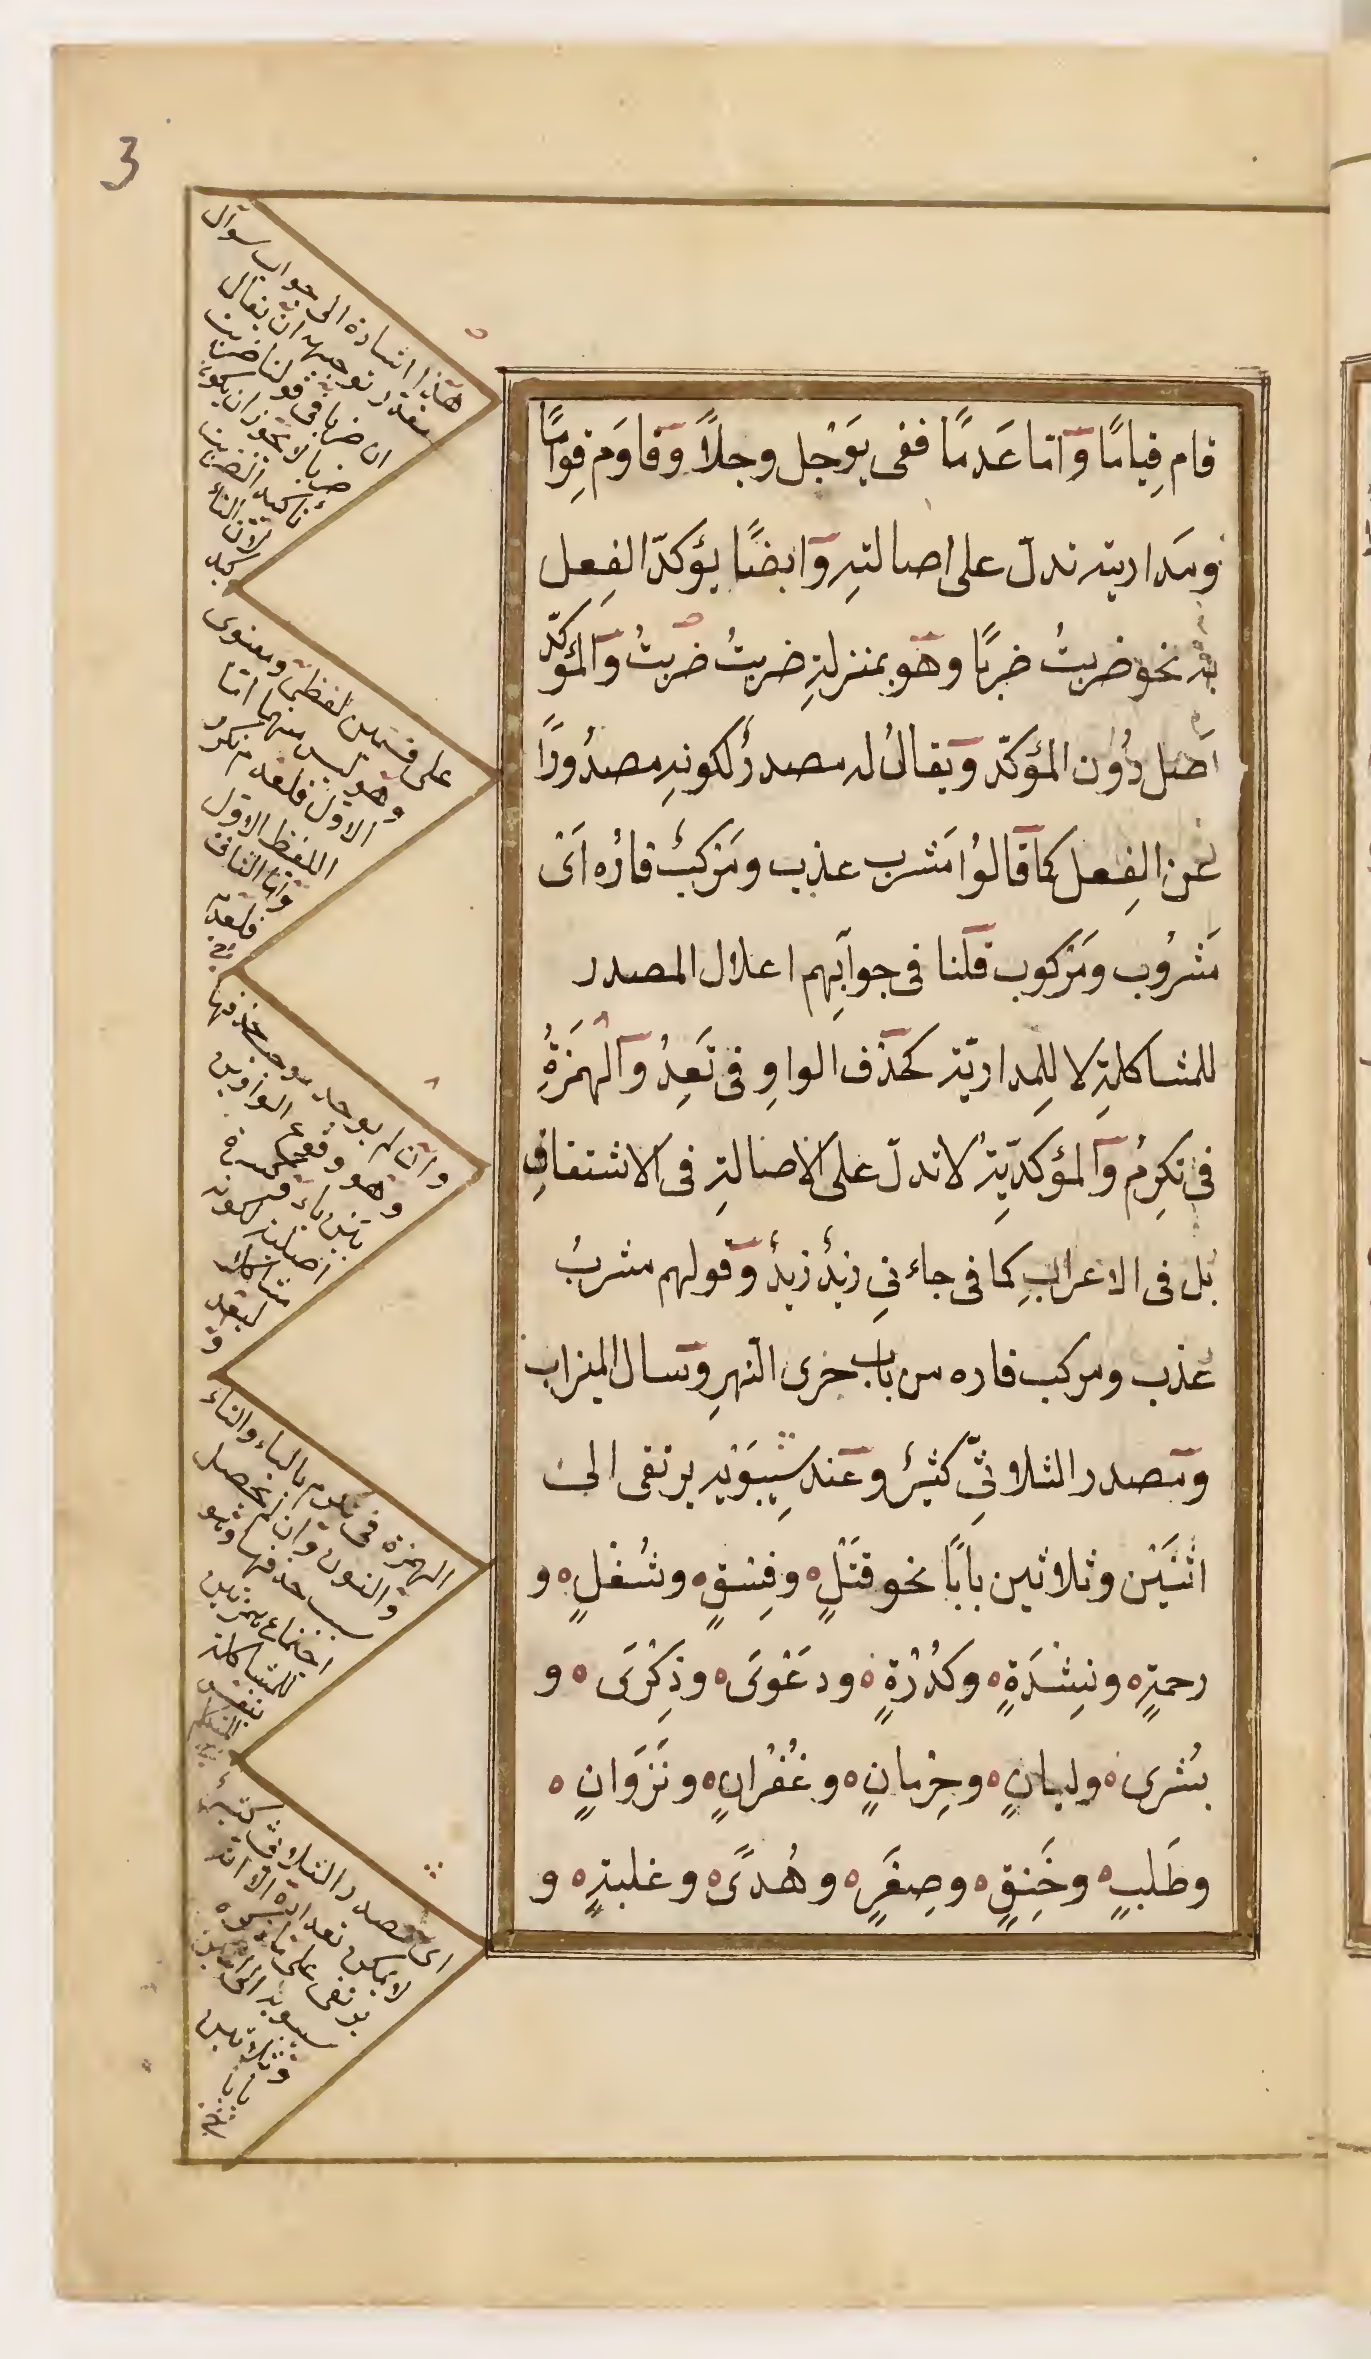 3
قام قِيامًا وَامّا عَدمًا ففى يَوْجل وجلًا وَقاوَم قِوامًا
ومَداريته تدلّ على اصالتهِ وَايضًا يؤكدّ الفِعِل
بهِ نحو ضربتُ ضربًا وهو بمنزلةِ ضربتُ ضربتُ وَالمؤكّد
اَصل دُون المؤكدّ وَيقالُ له مصدرٌ لكونهِ مصدُورًا
عَن الفِعل كما قالوُا مَشرب عذب ومَرْكبٌ فارُه اَىْ
مَشروُب ومَرْكوب قلنا فى جوابِهم اعلال المصدر
للمشاكلةِ لا لِلمداريّة كحذف الواوِ فى تَعِدُ وَالهمَزةُِ
فى تكرِمُ وَالمؤكدّيِةُ لا تدلّ على الاصالةِ فى الاشتقاقِ
بل فى الاعرابِ كما فى جاءنِى زيدٌ زيدٌ وَقولهم مشربٌ
عذب ومركب فاره من باب جرى النّهرِ وَسال الميزاب
وَمصدر الثلاثىِّ كثيرٌ وعَند سِيبَوَيْه يرتقى الى
اثْنَيْن وثلاثين بابًا نحو قَتْلٍ ه وفِسْقٍ ه وشُغْلٍ ه و
رحمةٍ ه ونِشْدَةٍ ه وكدُرْةٍ ه ودعَوْىَ ه وذِكْرَى ه و
بُشرى ه وليانٍ ه وحِرْمانٍ ه وغُفْرانٍ ه ونَزَوَانٍ ه
وطَلبٍ ه وخَنِقٍ ه وصِغَرٍ ه وهُدىً ه وغلبةٍ ه و
هذا اشارة الى جواب سوآل
مقدر توجيهه ان يقال
ان ضربا فى قولنا ضربت
ضربا لا يجوز ان يكون
تأكيد الضربت
لان التأ
كيد
على قسمين لفظى ومعنوى
وهو ليس منهما امّا
الاول فلعدم تكرر
اللفظ الاول
وامّا الثانى
فلعدم
وان لم يوجد موجب حذفها
وهو وقوع الواو بين
بين ياء وكسرة
اصلية لكونه
مشاكلا
ليعد
الهمزة فى تكرم بالياء والتاء
والنون وان لم يحصل
سبب حذفها وهو
اجتماع همزتين
للمشاكلة
بنفس
المتكلم
اى مصدر الثلاثى كثيرٌ
لا يمكن تعداده الا انه
يرتقى على ما ذكره
سيبويه الى اثنين
وثلاثين
بابا